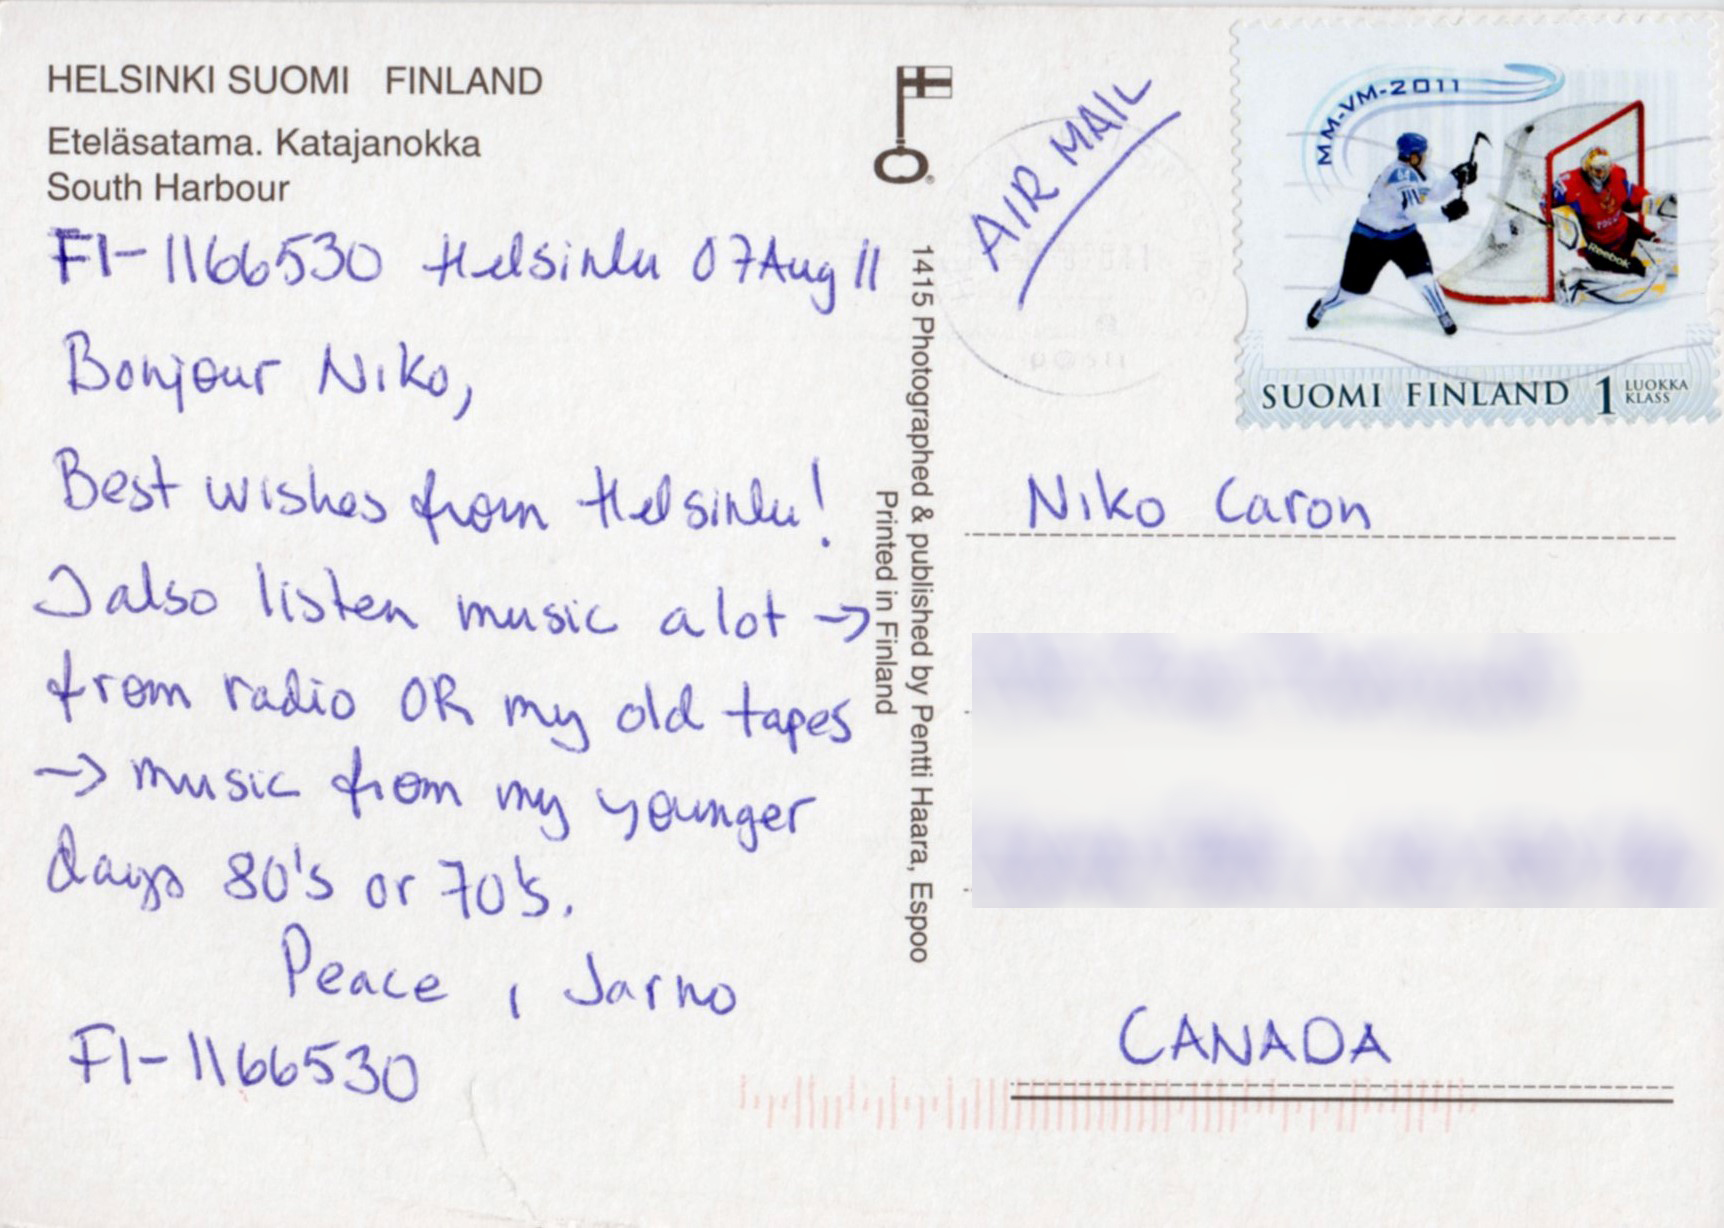 HELSINKI SUOMI FINLAND
Eteläsatama. Katajanokka
South Harbour
FI-1166530 Helsinki 07Aug 11
Bonjour Niko,
Best wishes from Helsinki!
I also listen music a lot →
from radio OR my old tapes
→ music from my younger
days 80's or 70's.
Peace, Jarno
FI-1166530
1415 Photographed & published by Pentti Haara, Espoo
Printed in Finland
AIR MAIL
MM-VM-2011
Reebok
SUOMI FINLAND 1 LUOKKA
KLASS
Niko Caron
CANADA